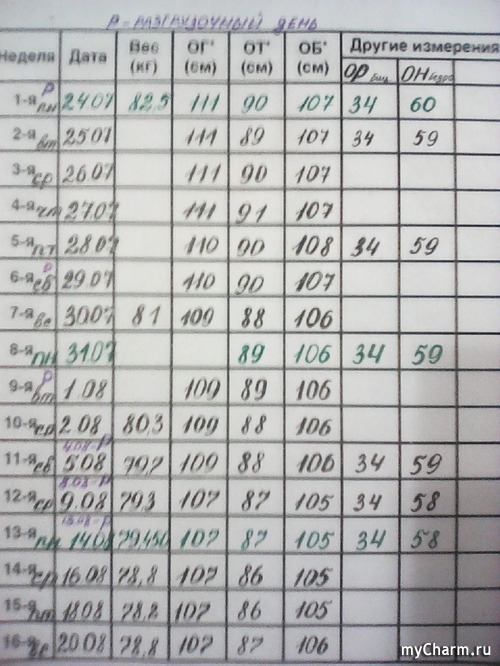 Р = РАЗГРУЗОЧНЫЙ ДЕНЬ
Неделя Дата Вес (кг) ОГ* (см) ОТ* (см) ОБ* (см) Другие измерения
ОР ОН
Р
1-я пн 24.07 82,5 111 90 107 34 60
2-я вт 25.07 111 89 107 34 59
3-я ср 26.07 111 90 107
4-я чт 27.07 111 91 107
5-я пт 28.07 110 90 108 34 59
Р
6-я сб 29.07 110 90 107
7-я вс 30.07 81 109 88 106
8-я пн 31.07 89 106 34 59
Р
9-я вт 1.08 109 89 106
10-я ср 2.08 80,3 109 88 106
4.08-Р
11-я сб 5.08 79,7 109 88 106 34 59
8.08-Р
12-я ср 9.08 79,3 107 87 105 34 58
13-я пн 14.08 79,450 107 87 105 34 58
14-я ср 16.08 78,8 107 86 105
15-я пт 18.08 78,8 107 86 105
16-я вс 20.08 78,8 107 87 106
myCharm.ru